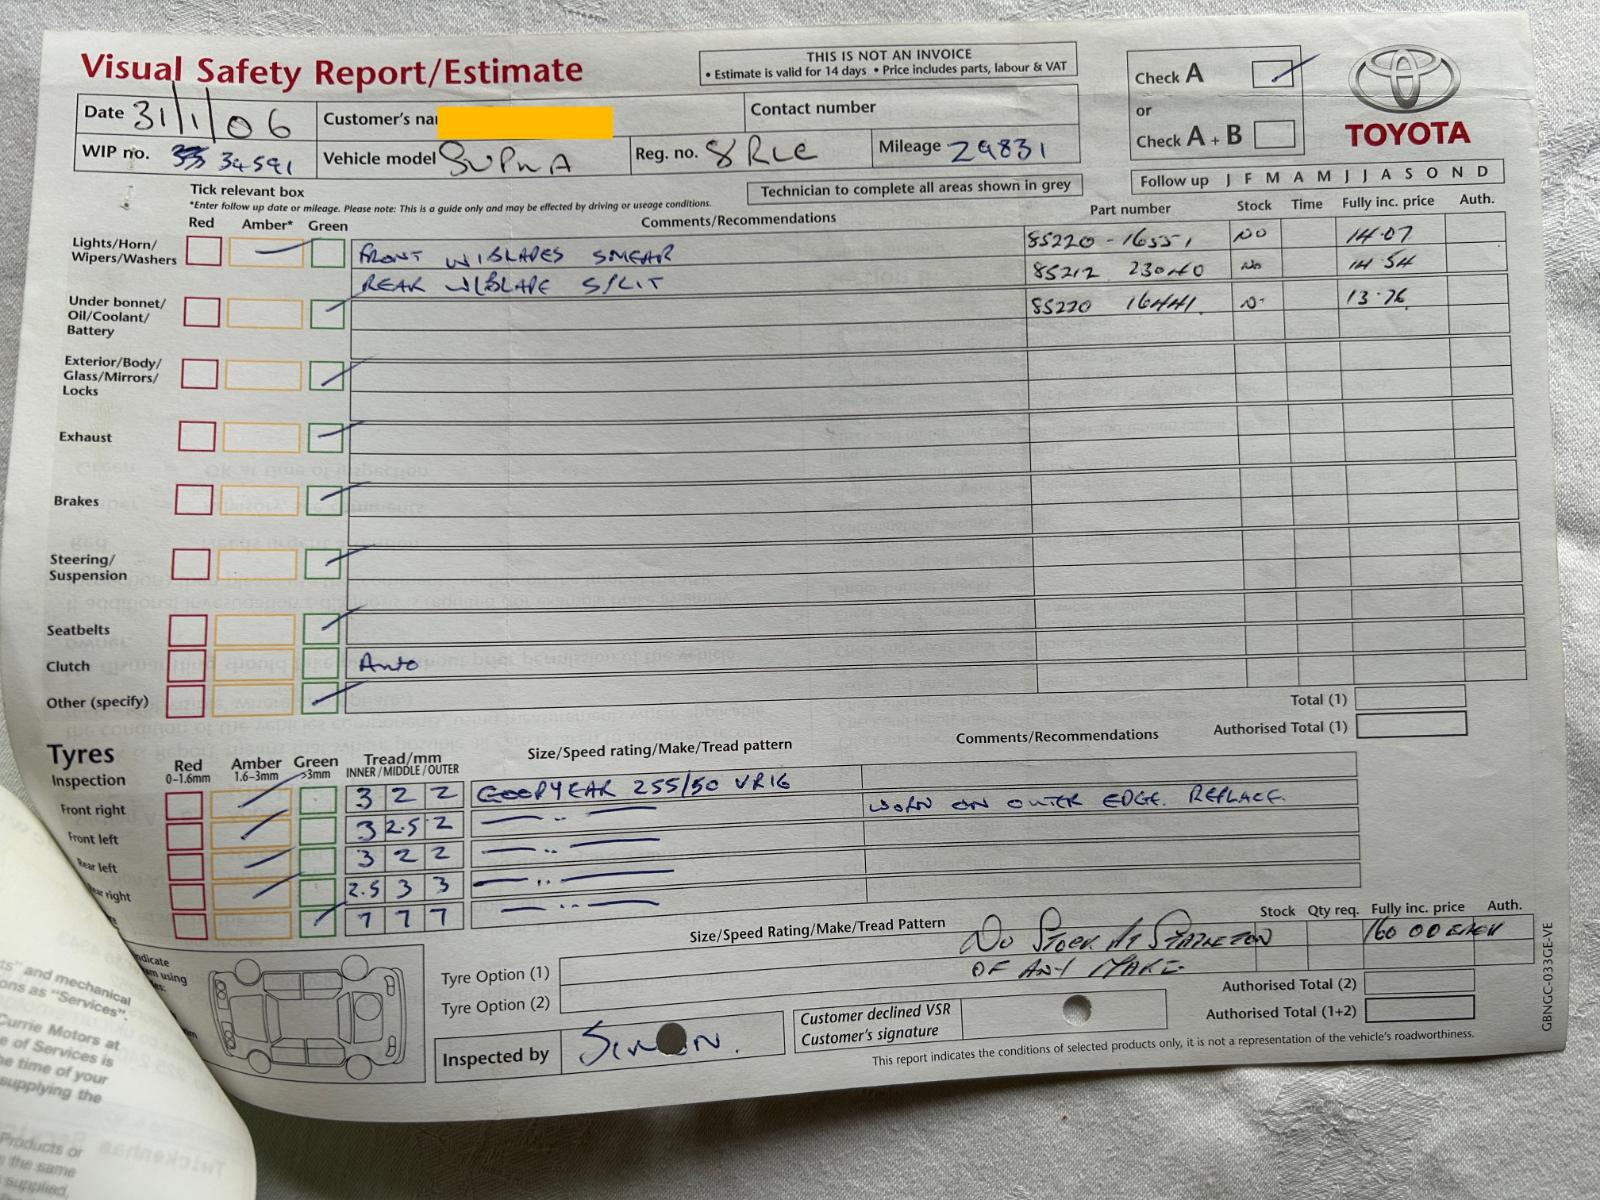 Visual Safety Report/Estimate
THIS IS NOT AN INVOICE
• Estimate is valid for 14 days • Price includes parts, labour & VAT
Check A
or
Check A + B
TOYOTA
Date 31/1/06
Customer's nar
Contact number
WIP no. 34591
Vehicle model SUPRA
Reg. no. 8 RLC
Mileage 29831
Follow up J F M A M J J A S O N D
Tick relevant box
Technician to complete all areas shown in grey
*Enter follow up date or mileage. Please note: This is a guide only and may be effected by driving or useage conditions.
Red Amber* Green Comments/Recommendations Part number Stock Time Fully inc. price Auth.
Lights/Horn/
Wipers/Washers
FRONT W/BLADES SMEAR 85220 - 16551 NO 14.07
REAR W/BLADE SPLIT 85212 23040 No 14 54
Under bonnet/
Oil/Coolant/
Battery
85220 16441. 13.76
Exterior/Body/
Glass/Mirrors/
Locks
Exhaust
Brakes
Steering/
Suspension
Seatbelts
Clutch Auto
Other (specify)
Total (1)
Authorised Total (1)
Tyres
Inspection
Red
0-1.6mm
Amber
1.6-3mm
Green
>3mm
Tread/mm
INNER/MIDDLE/OUTER
Size/Speed rating/Make/Tread pattern
Comments/Recommendations
Front right 3 2 2 GOODYEAR 255/50 VR16
WORN ON OUTER EDGE. REPLACE.
Front left 3 2.5 2 — " —
Rear left 3 2 2 — " —
right 2.5 3 3 — " —
7 7 7 — " —
Size/Speed Rating/Make/Tread Pattern
Stock Qty req. Fully inc. price Auth.
Tyre Option (1)
No STOCK AT STAPLETON 160 00 EACH
OF ANY MAKE.
Tyre Option (2)
Authorised Total (2)
Authorised Total (1+2)
Inspected by SIMON.
Customer declined VSR
Customer's signature
This report indicates the conditions of selected products only, it is not a representation of the vehicle's roadworthiness.
GBNGC-033GE-VE
ndicate
using
ts" and mechanical
ons as "Services".
Currie Motors at
e of Services is
he time of your
supplying the
Products or
the same
supplied,